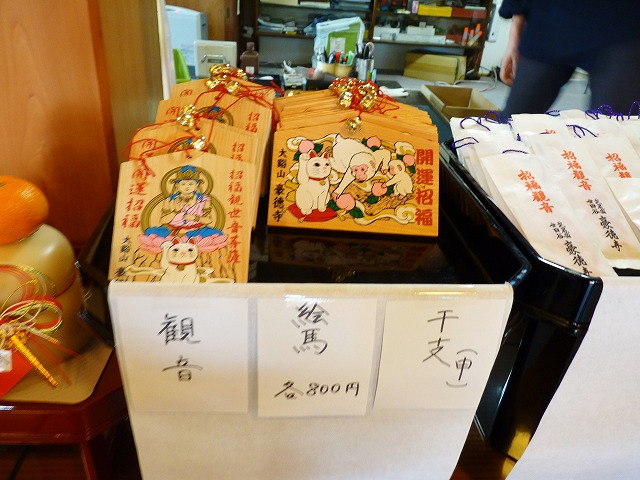 開運招福
招福観世音菩薩
大谿山 豪德寺
開運招福
大谿山 豪德寺
招福観音
豪德寺
招福観音
観音
絵馬
各800円
干支(申)